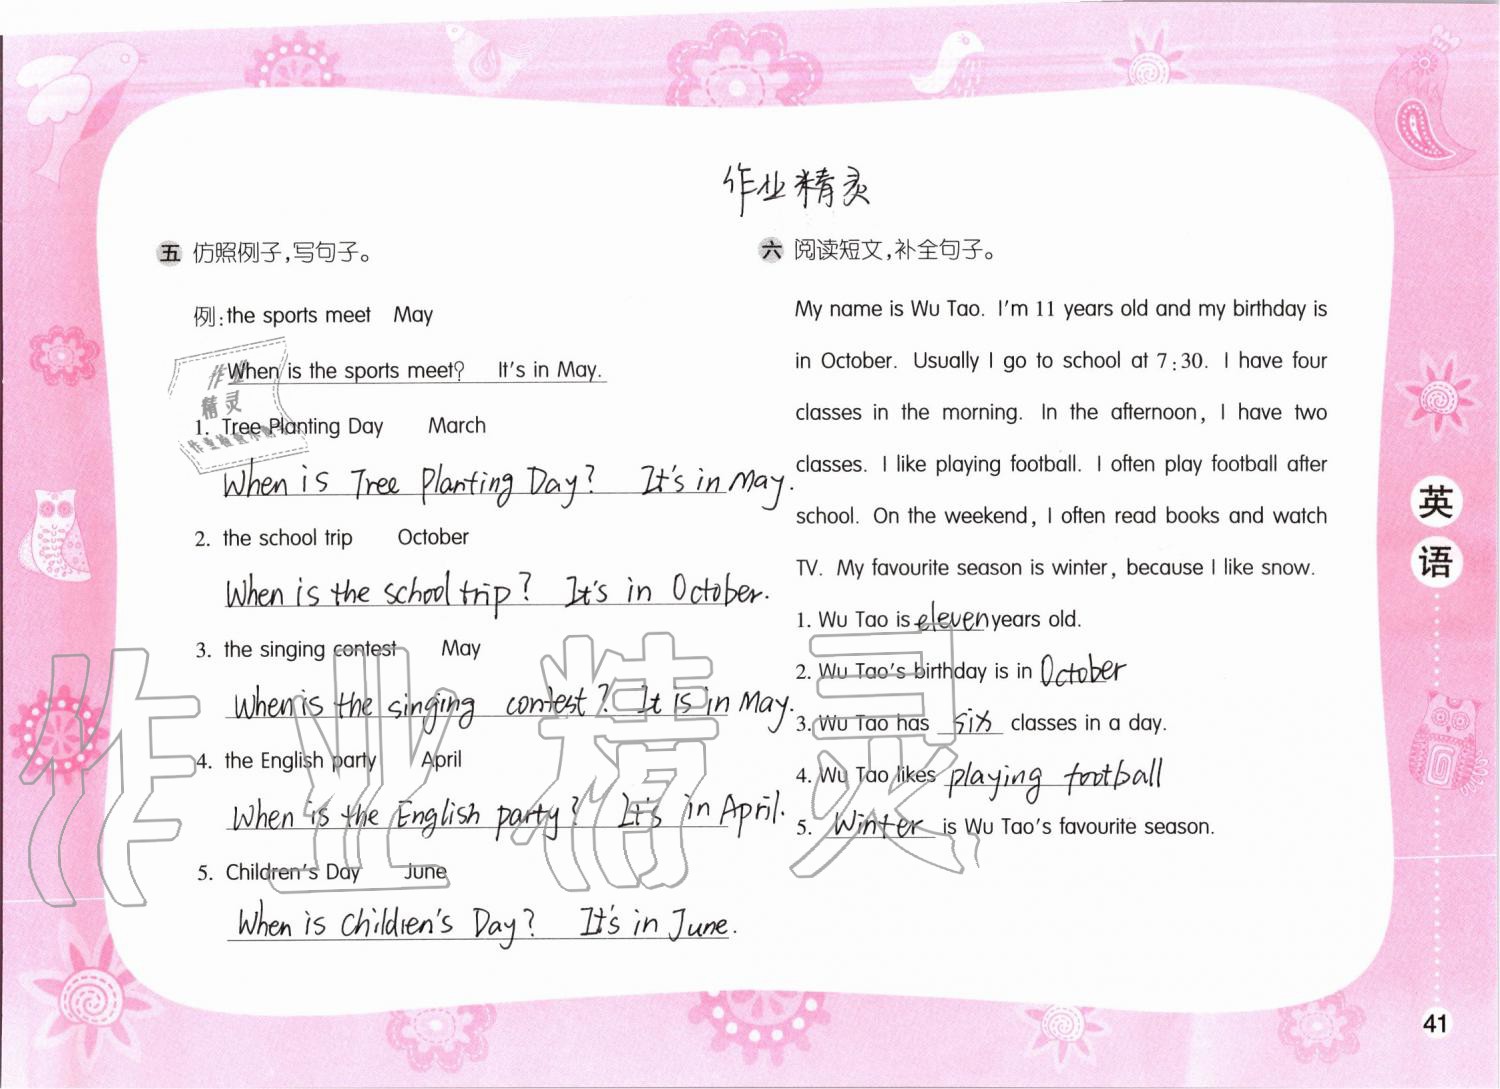 作业精灵
五 仿照例子,写句子。
例:the sports meet May
When is the sports meet? It's in May.
1. Tree Planting Day March
When is Tree Planting Day? It's in May.
2. the school trip October
When is the school trip? It's in October.
3. the singing contest May
When is the singing contest? It is in May.
4. the English party April
When is the English party? It's in April.
5. Children's Day June
When is Children's Day? It's in June.
六 阅读短文,补全句子。
My name is Wu Tao. I'm 11 years old and my birthday is
in October. Usually I go to school at 7:30. I have four
classes in the morning. In the afternoon, I have two
classes. I like playing football. I often play football after
school. On the weekend, I often read books and watch
TV. My favourite season is winter, because I like snow.
1. Wu Tao is eleven years old.
2. Wu Tao's birthday is in October
3. Wu Tao has six classes in a day.
4. Wu Tao likes playing football
5. Winter is Wu Tao's favourite season.
英
语
41
作业精灵
作业
精灵